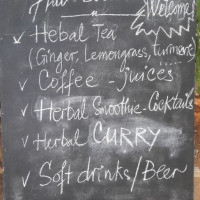 Welcome!
✓ Hebal Tea
(Ginger, Lemongrass, turmeric)
✓ Coffee - juices
✓ Herbal Smoothie - Cocktails
✓ Herbal CURRY
✓ Soft drinks/Beer